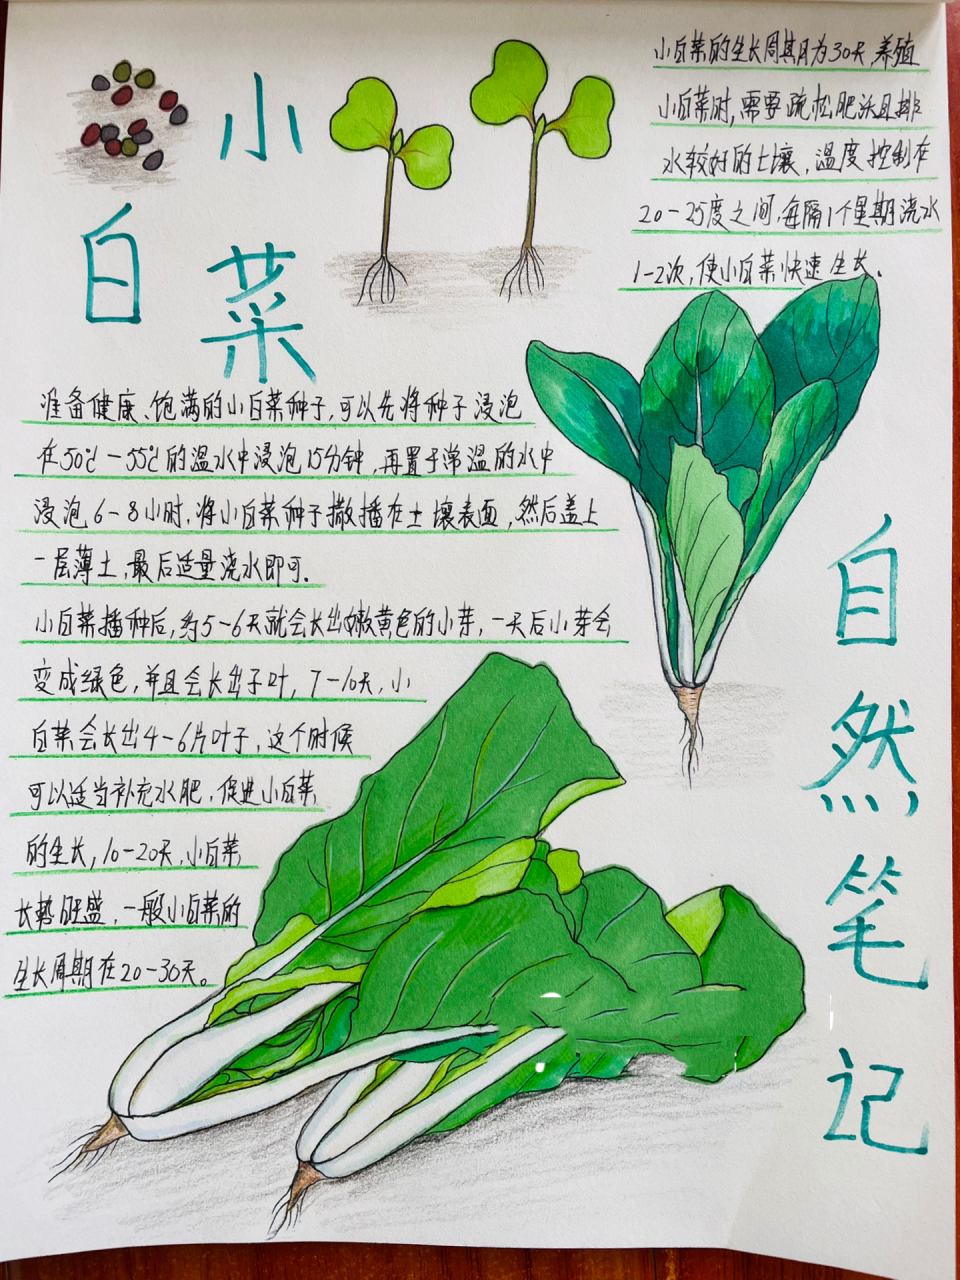 小白菜
小白菜的生长周期为30天,养殖
小白菜时,需要疏松肥沃且排
水较好的土壤,温度控制在
20-25度之间,每隔1个星期浇水
1-2次,使小白菜快速生长。
准备健康、饱满的小白菜种子,可以先将种子浸泡
在50℃-55℃的温水中浸泡15分钟,再置于常温的水中
浸泡6-8小时,将小白菜种子撒播在土壤表面,然后盖上
一层薄土,最后适量浇水即可.
小白菜播种后,约5-6天就会长出嫩黄色的小芽,一天后小芽会
变成绿色,并且会长出子叶,7-10天,小
白菜会长出4-6片叶子,这个时候
可以适当补充水肥,促进小白菜
的生长,10-20天,小白菜
长势旺盛,一般小白菜的
生长周期在20-30天。
自然笔记